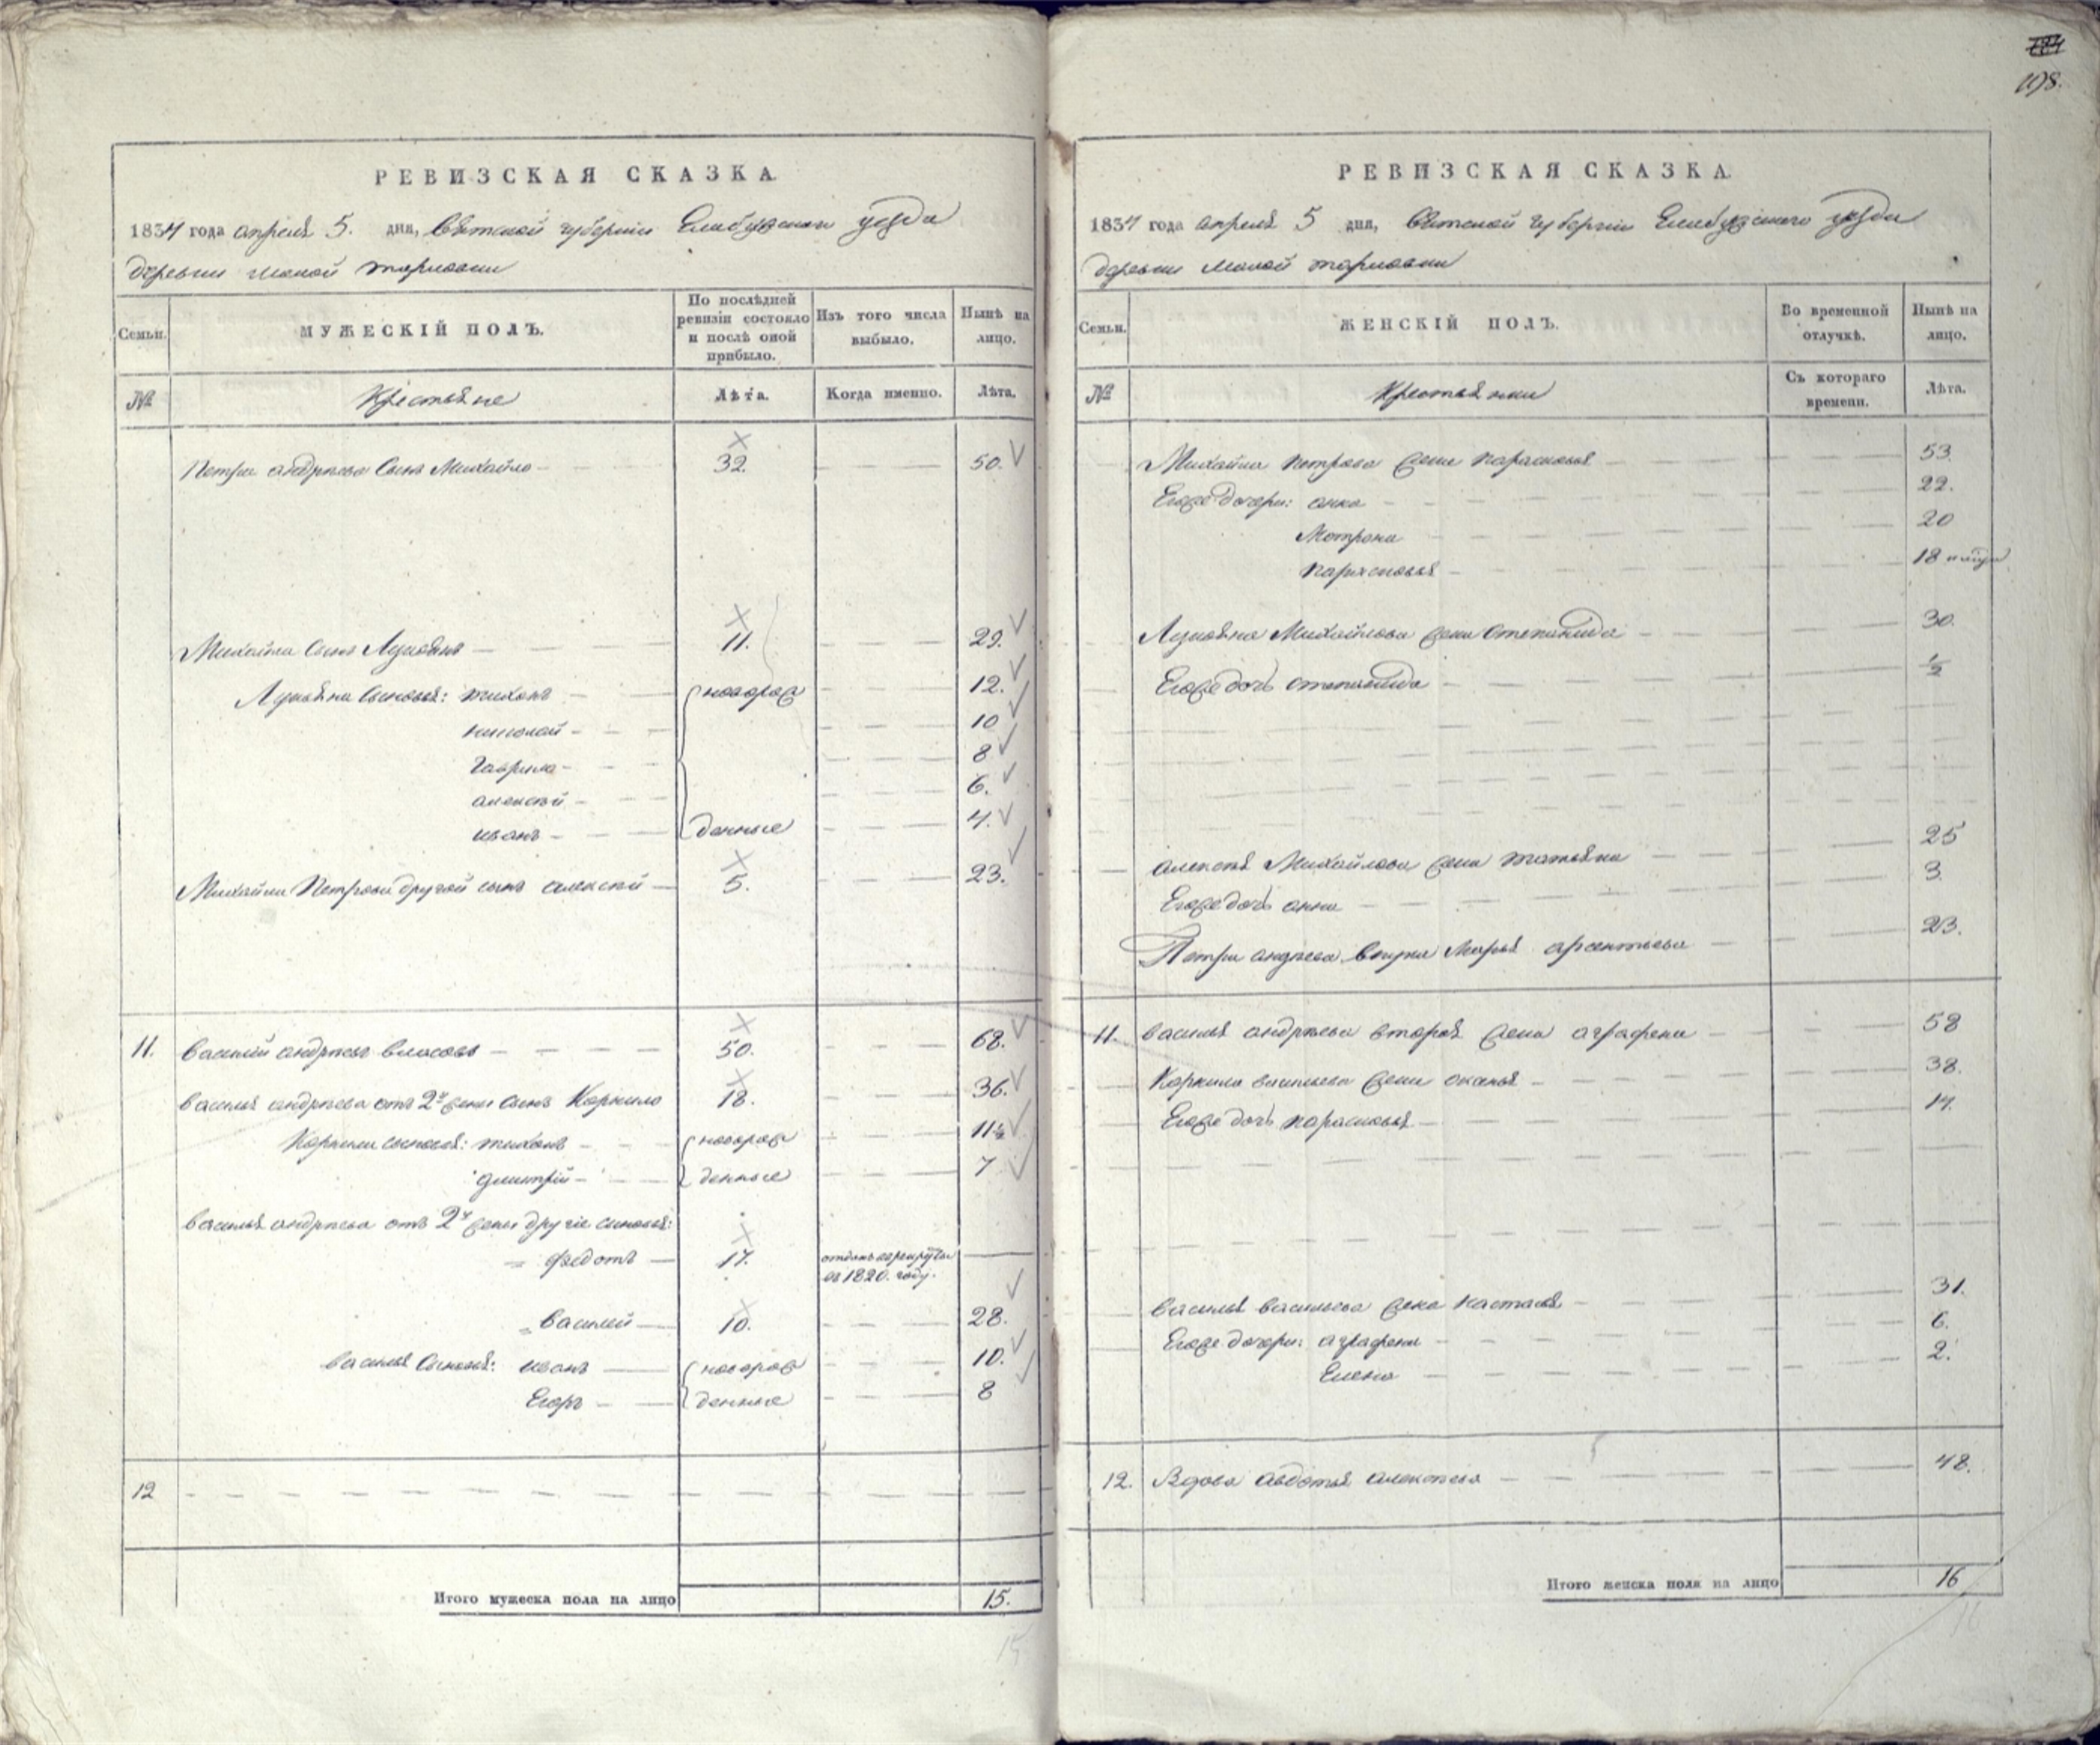 198.
РЕВИЗСКАЯ СКАЗКА.
1834 года апреля 5. дня, Вятской губернии Елабужскаго уезда
деревни малой торловки
Семьи.
МУЖЕСКІЙ ПОЛЪ.
По послѣдней ревизіи состояло и послѣ оной прибыло.
Изъ того числа выбыло.
Нынѣ на лицо.
№
Крестьяне
Лѣта.
Когда именно.
Лѣта.
Петра андреева сынъ Михайло 32. 50.
Михайла сынъ Лукоянъ 11. 29.
Лукояна сыновья: тихонъ новорож 12.
николай 10
гаврила 8
алексѣй 6.
иванъ денные 4.
Михайла Петрова другой сынъ алексѣй 5. 23.
11. василій андреевъ власовъ 50. 68.
василья андреева отъ 2й жены сынъ Корнило 18. 36.
Корнила сыновья: тихонъ новорож 11½
дмитрій денные 7
василья андреева отъ 2й жены другіе сыновья:
федотъ 17. отданъ в рекруты
въ 1820. году.
василей 10. 28.
василья сыновья: иванъ новорож 10.
Егоръ денные 8
12
Итого мужеска пола на лицо 15.
15
РЕВИЗСКАЯ СКАЗКА.
1834 года апреля 5 дня, Вятской губернии Елабужскаго уезда
деревни малой торловки
Семьи.
ЖЕНСКІЙ ПОЛЪ.
Во временной отлучкѣ.
Нынѣ на лицо.
№
Крестьянки
Съ котораго времени.
Лѣта.
Михайла петрова жена парасковья 53.
Егоже дочери: анна 22.
Матрона 20
парасковья 18
Лукояна Михайлова жена степанида 30.
Егоже дочь степанида ½
алексѣя Михайлова жена татьяна 25
Егоже дочь анна 3.
Петра андреева внука Марья арсентьева 23.
11. василья андреева вторая жена аграфена 58
Корнила васильева жена оксинья 38.
Егоже дочь парасковья 14.
василья васильева жена настасья 31.
Егоже дочери: аграфена 6.
Елена 2.
12. Вдова авдотья алексеева 48.
Итого женска пола на лицо 16
16